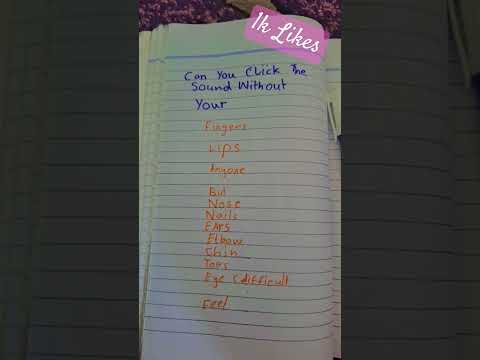 1k Likes
Can You Click The
Sound Without
Your
Fingers
Lips
Anyone
But
Nose
Nails
EARS
Elbow
Chin
Toes
Eye (difficult
Feel